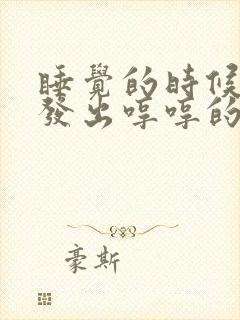 睡覺的時候
發出哼哼的
豪斯